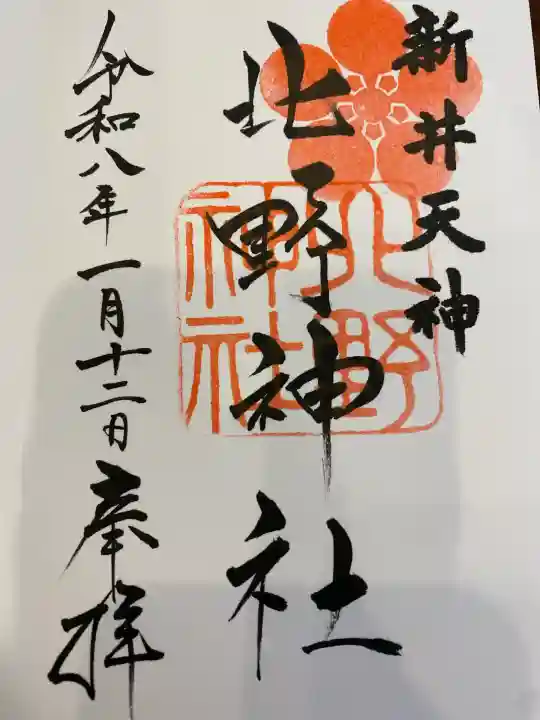 新井天神
北野神社
令和八年一月十二日奉拝
北野
神社